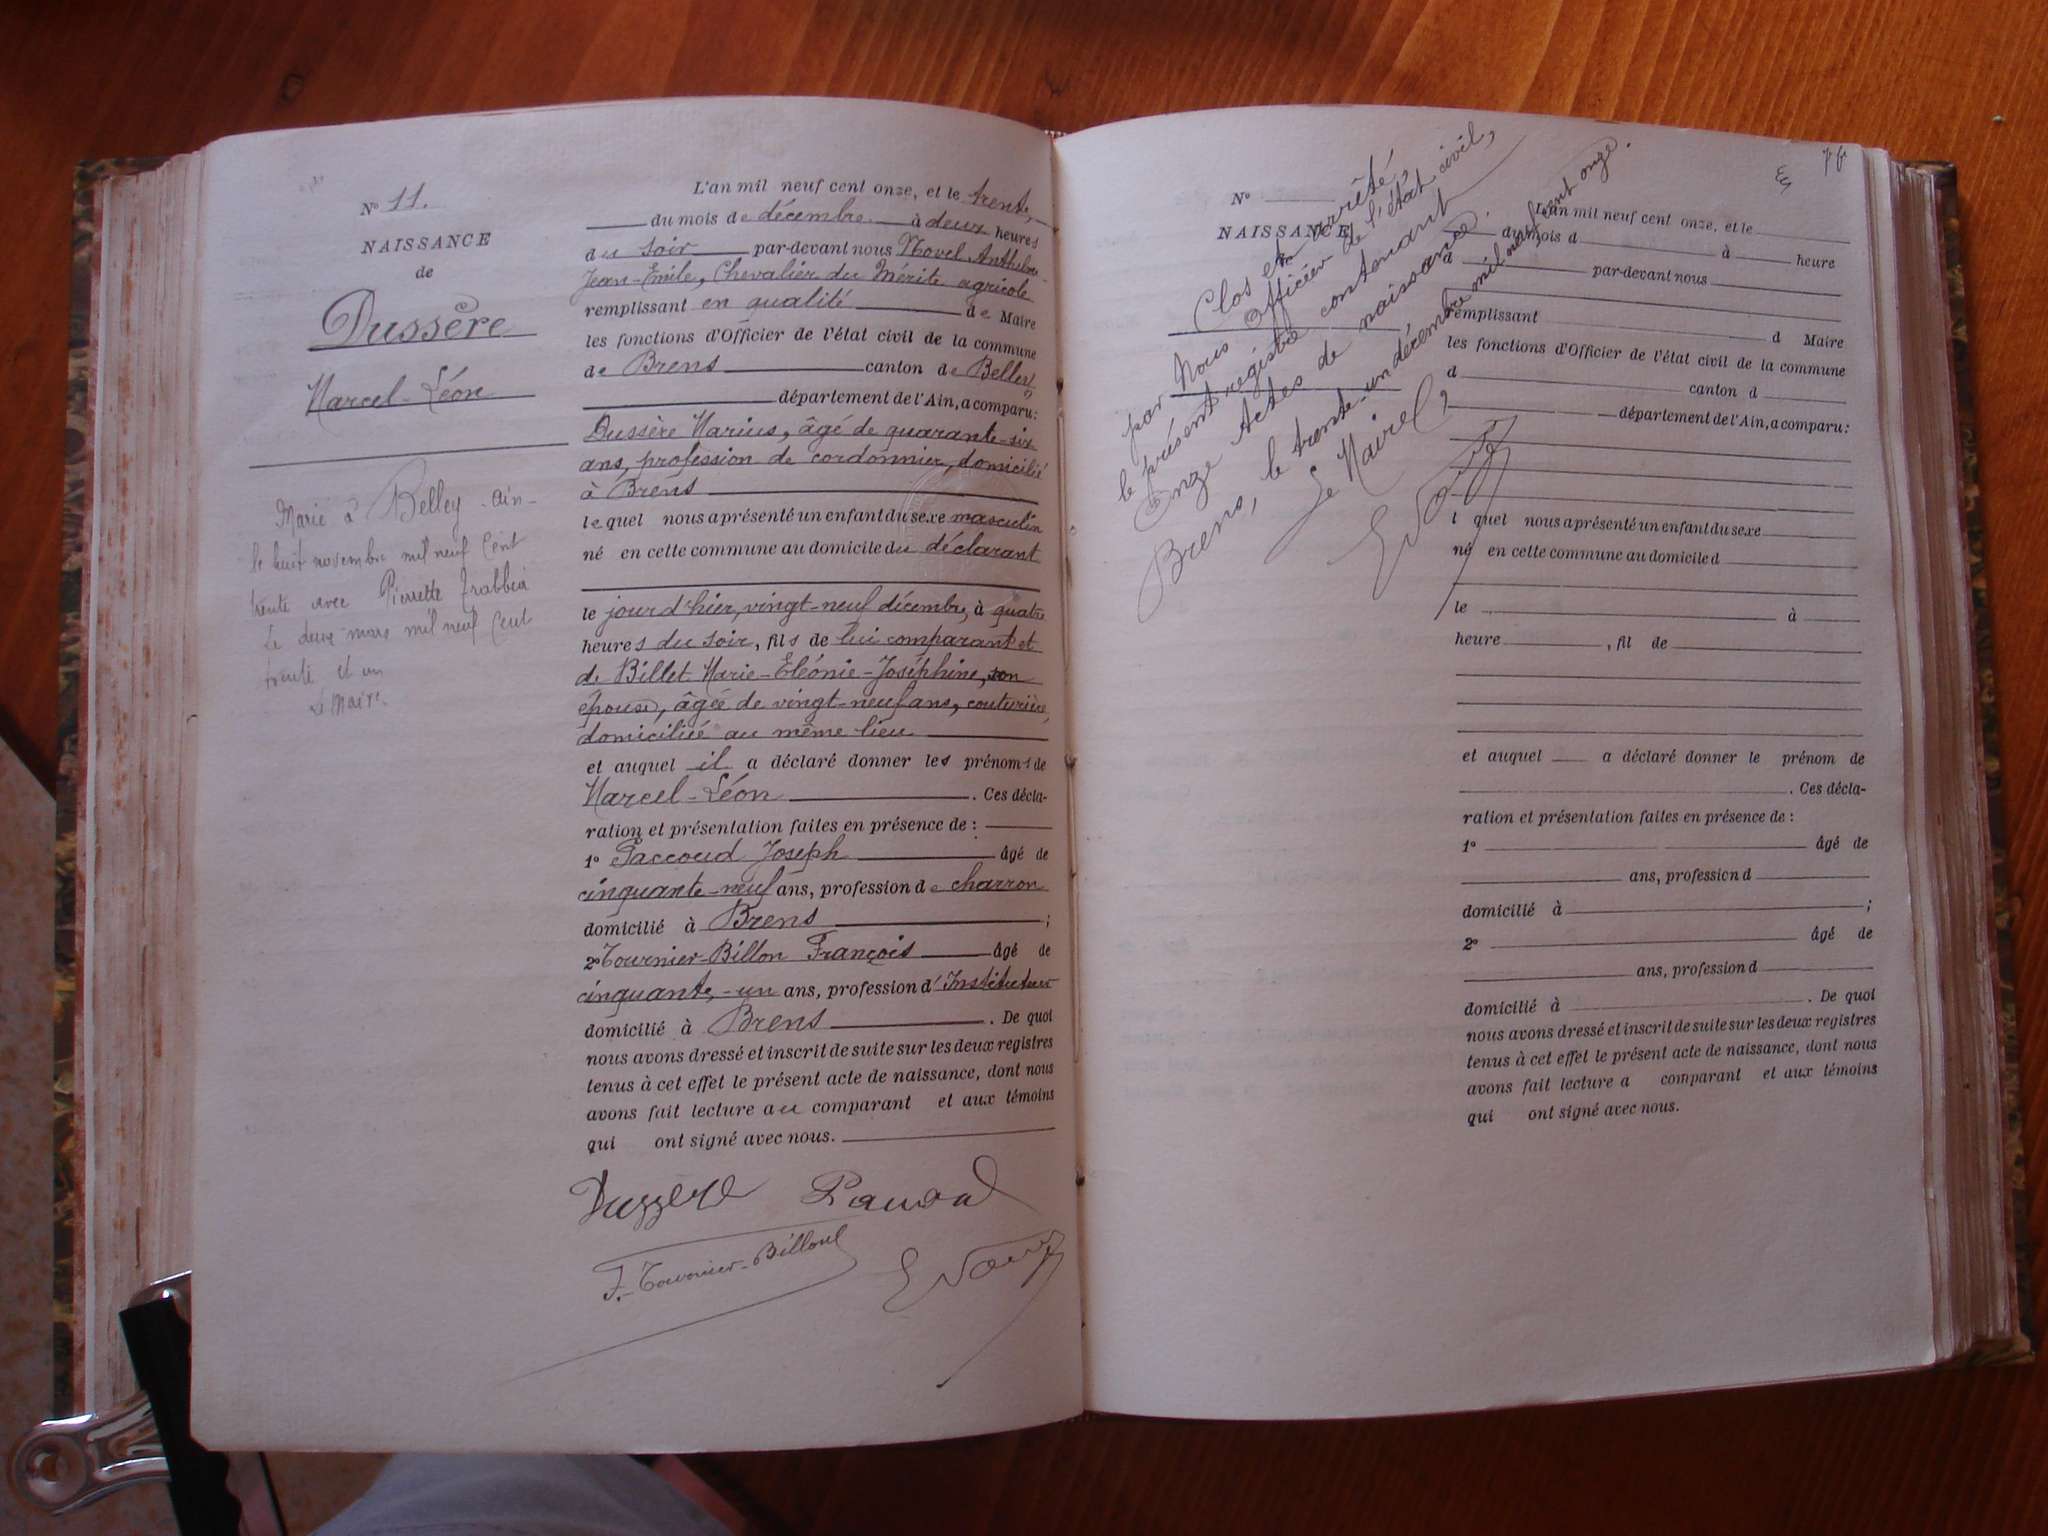 N° 11.
NAISSANCE
de
Dussère
Marcel-Léon
Marié à Belley - Ain -
le huit novembre mil neuf cent
trente avec Pierrette
Le deux mars mil neuf cent
trente et un
Le Maire.
L'an mil neuf cent onze, et le trente,
du mois de décembre à deux heures
du soir par-devant nous Novel Anthelme
Jean-Emile, Chevalier du Mérite agricole
remplissant en qualité de Maire
les fonctions d'Officier de l'état civil de la commune
de Brens canton de Belley
département de l'Ain, a comparu:
Dussère Marius, âgé de quarante-six
ans, profession de cordonnier, domicilié
à Brens
lequel nous a présenté un enfant du sexe masculin
né en cette commune au domicile du déclarant
le jour d'hier, vingt-neuf décembre, à quatre
heures du soir, fils de lui comparant et
de Billet Marie-Eléonie-Joséphine, son
épouse, âgée de vingt-neuf ans, couturière,
domiciliée au même lieu
et auquel il a déclaré donner les prénoms de
Marcel-Léon . Ces décla-
ration et présentation faites en présence de :
1° Paccoud Joseph âgé de
cinquante-neuf ans, profession de charron
domicilié à Brens ;
2° Tournier-Billon François âgé de
cinquante-un ans, profession d'Instituteur
domicilié à Brens . De quoi
nous avons dressé et inscrit de suite sur les deux registres
tenus à cet effet le présent acte de naissance, dont nous
avons fait lecture au comparant et aux témoins
qui ont signé avec nous.
Dussere
F. Tournier-Billon
76
N°
NAISSANCE
Clos et arrêté
par Nous Officier de l'état civil,
le présent registre contenant
Onze Actes de naissance.
Brens, le trente-un décembre mil neuf cent onze.
Le Maire,
L'an mil neuf cent onze, et le
du mois d à heure
d par-devant nous
remplissant d Maire
les fonctions d'Officier de l'état civil de la commune
d canton d
département de l'Ain, a comparu:
l quel nous a présenté un enfant du sexe
né en cette commune au domicile d
le à
heure , fil de
et auquel a déclaré donner le prénom de
. Ces décla-
ration et présentation faites en présence de :
1° âgé de
ans, profession d
domicilié à ;
2° âgé de
ans, profession d
domicilié à . De quoi
nous avons dressé et inscrit de suite sur les deux registres
tenus à cet effet le présent acte de naissance, dont nous
avons fait lecture a comparant et aux témoins
qui ont signé avec nous.